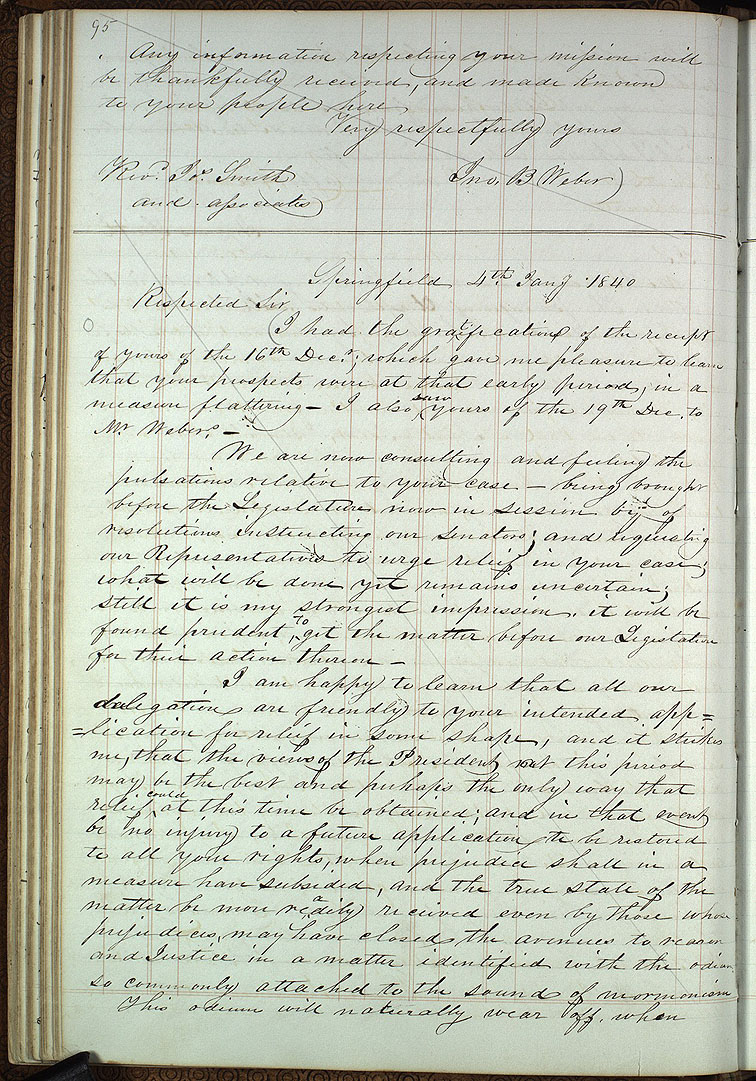 95
Any information respecting your mission will
be thankfully received, and made known
to your people here
Very respectfully yours
Revd. Jos. Smith Jno. B Weber
and associates
Springfield 4th. Jany 1840
Respected Sir
I had the gratification of the receipt
of yours of the 16th Decr; which gave me pleasure to learn
that your prospects were at that early period, in a
measure flattering— I also saw yours of the 19th Dec. to
Mr Weber.—
We are now consulting and feeling the
pulsations relative to your case — being brought
before the Legislature now in session by of
resolutions instructing our Senators; and requesting
our Representatives to urge relief in your case;
what will be done yet remains uncertain;
still it is my strongest impression. it will be
found prudent, to get the matter before our Legislature
for their action thereon—
I am happy to learn that all our
delegation are friendly to your intended app=
=lication for relief in some shape, and it strikes
me, that the views of the President at this period
may be the best and perhaps the only way that
relief could at this time be obtained; and in that event
be no injury to a future application to be restored
to all your rights, when prejudice shall in a
measure have subsided, and the true state of the
matter be more readily received even by those whose
prejudices may have closed the avenues to reason
and Justice in a matter identified with the odium
so commonly attached to the sound of mormonism
This odium will naturally wear off. when